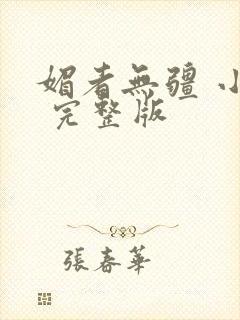 媚者無疆 小
完整版
張春華